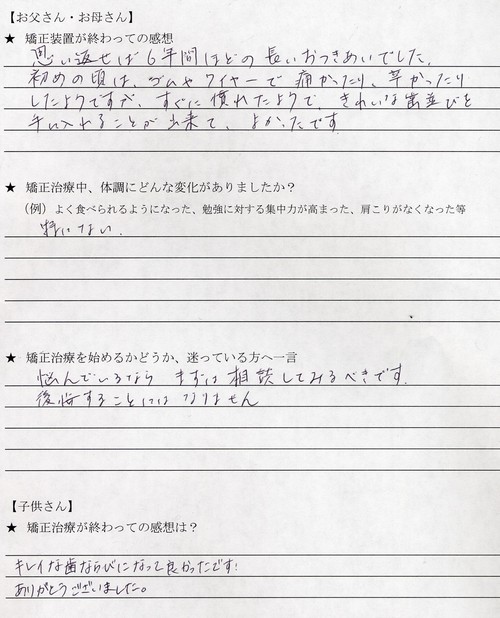 【お父さん・お母さん】
★ 矯正装置が終わっての感想
思い返せば6年間ほどの長いおつきあいでした。
初めの頃は、ゴムやワイヤーで痛かったり、辛かったり
したようですが、すぐに慣れたようで、きれいな歯並びを
手に入れることが出来て、よかったです
★ 矯正治療中、体調にどんな変化がありましたか？
（例）よく食べられるようになった、勉強に対する集中力が高まった、肩こりがなくなった等
特にない.
★ 矯正治療を始めるかどうか、迷っている方へ一言
悩んでいるなら まずは相談してみるべきです.
後悔することにはなりません
【子供さん】
★ 矯正治療が終わっての感想は？
キレイな歯ならびになって良かったです!
ありがとうございました。